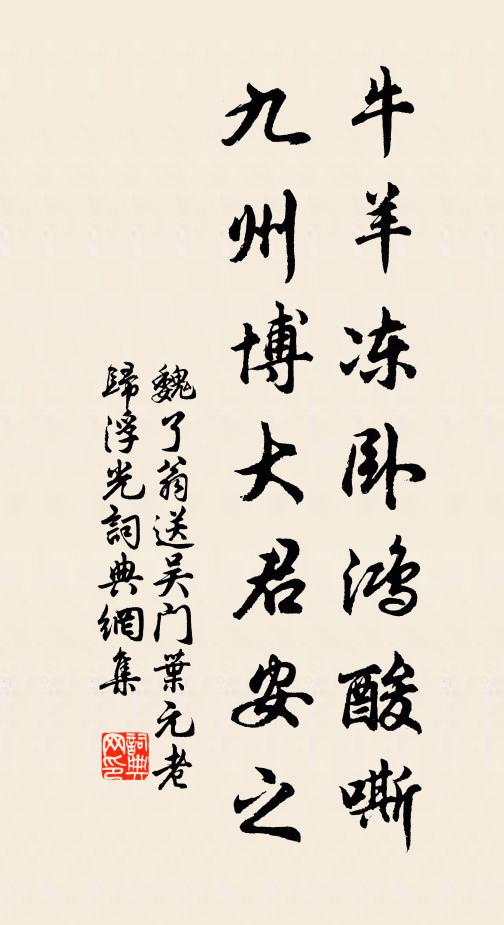 牛羊冻卧鸿酸嘶
九州博大君安之
魏了翁送吴门葉元老
歸浮光詞典網集
詞典网印